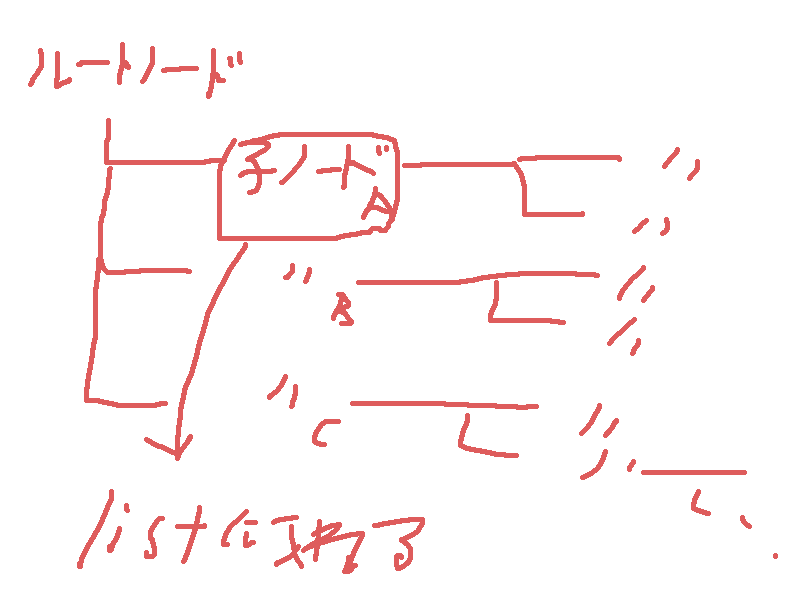 ルートノード
子ノード 〃
A
〃
〃 〃
B
〃
〃 〃
C
〃
listに取れる